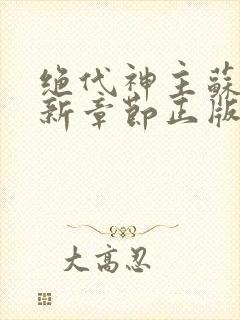 绝代神主蘇
新章節正版
大高忍